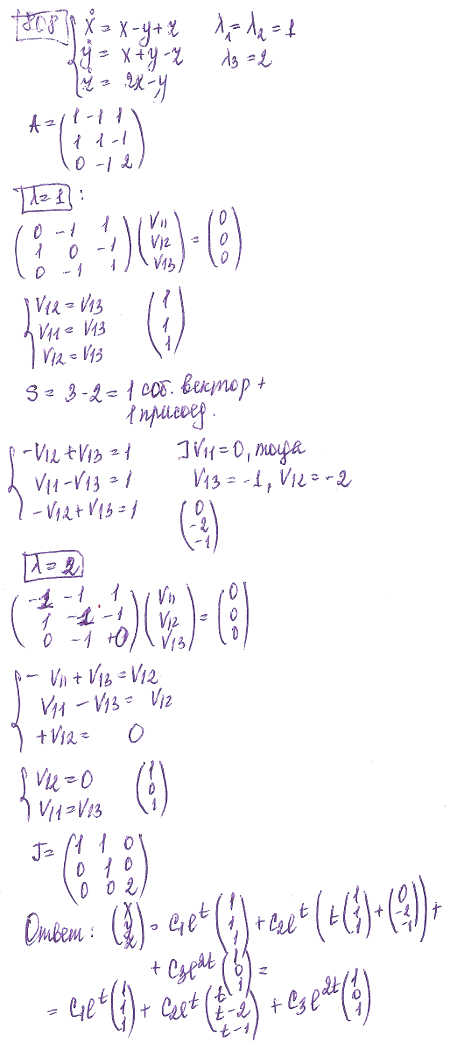 808 { ẋ = x-y+z   λ₁=λ₂=1
ẏ = x+y-z   λ₃=2
ż = 2x-y
A = ( 1 -1 1
1 1 -1
0 -1 2 )
λ=1 :
( 0 -1 1
1 0 -1
0 -1 1 ) ( V₁₁
V₁₂
V₁₃ ) = ( 0
0
0 )
{ V₁₂ = V₁₃
V₁₁ = V₁₃
V₁₂ = V₁₃
( 1
1
1 )
S = 3-2 = 1 соб. вектор +
1 присоед.
{ -V₁₂+V₁₃=1   ]V₁₁=0, тогда
V₁₁-V₁₃=1   V₁₃=-1, V₁₂=-2
-V₁₂+V₁₃=1
( 0
-2
-1 )
λ=2
( -1 -1 1
1 -1 -1
0 -1 +0 ) ( V₁₁
V₁₂
V₁₃ ) = ( 0
0
0 )
{ - V₁₁+V₁₃=V₁₂
V₁₁-V₁₃= V₁₂
+V₁₂= 0
{ V₁₂=0
V₁₁=V₁₃
( 1
0
1 )
J= ( 1 1 0
0 1 0
0 0 2 )
Ответ: ( x
y
z ) = C₁eᵗ ( 1
1
1 ) + C₂eᵗ ( t ( 1
1
1 ) + ( 0
-2
-1 ) ) +
+ C₃e²ᵗ ( 1
0
1 ) =
= C₁eᵗ ( 1
1
1 ) + C₂eᵗ ( t
t-2
t-1 ) + C₃e²ᵗ ( 1
0
1 )